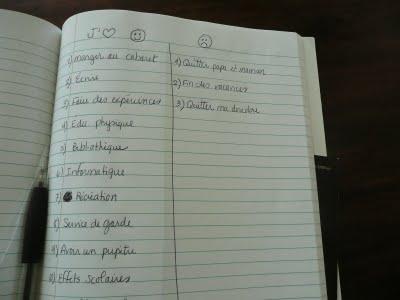 J'♡ ☺
☹
1) manger au cabaret
2) Écrire
3) Faire des expériences
4) Édu physique
5) Bibliothèque
6) Informatique
7) Récréation
8) Service de garde
9) Avoir un pupitre
10) Effets scolaires
1) Quitter papa et maman
2) Fin des vacances
3) Quitter ma doudou